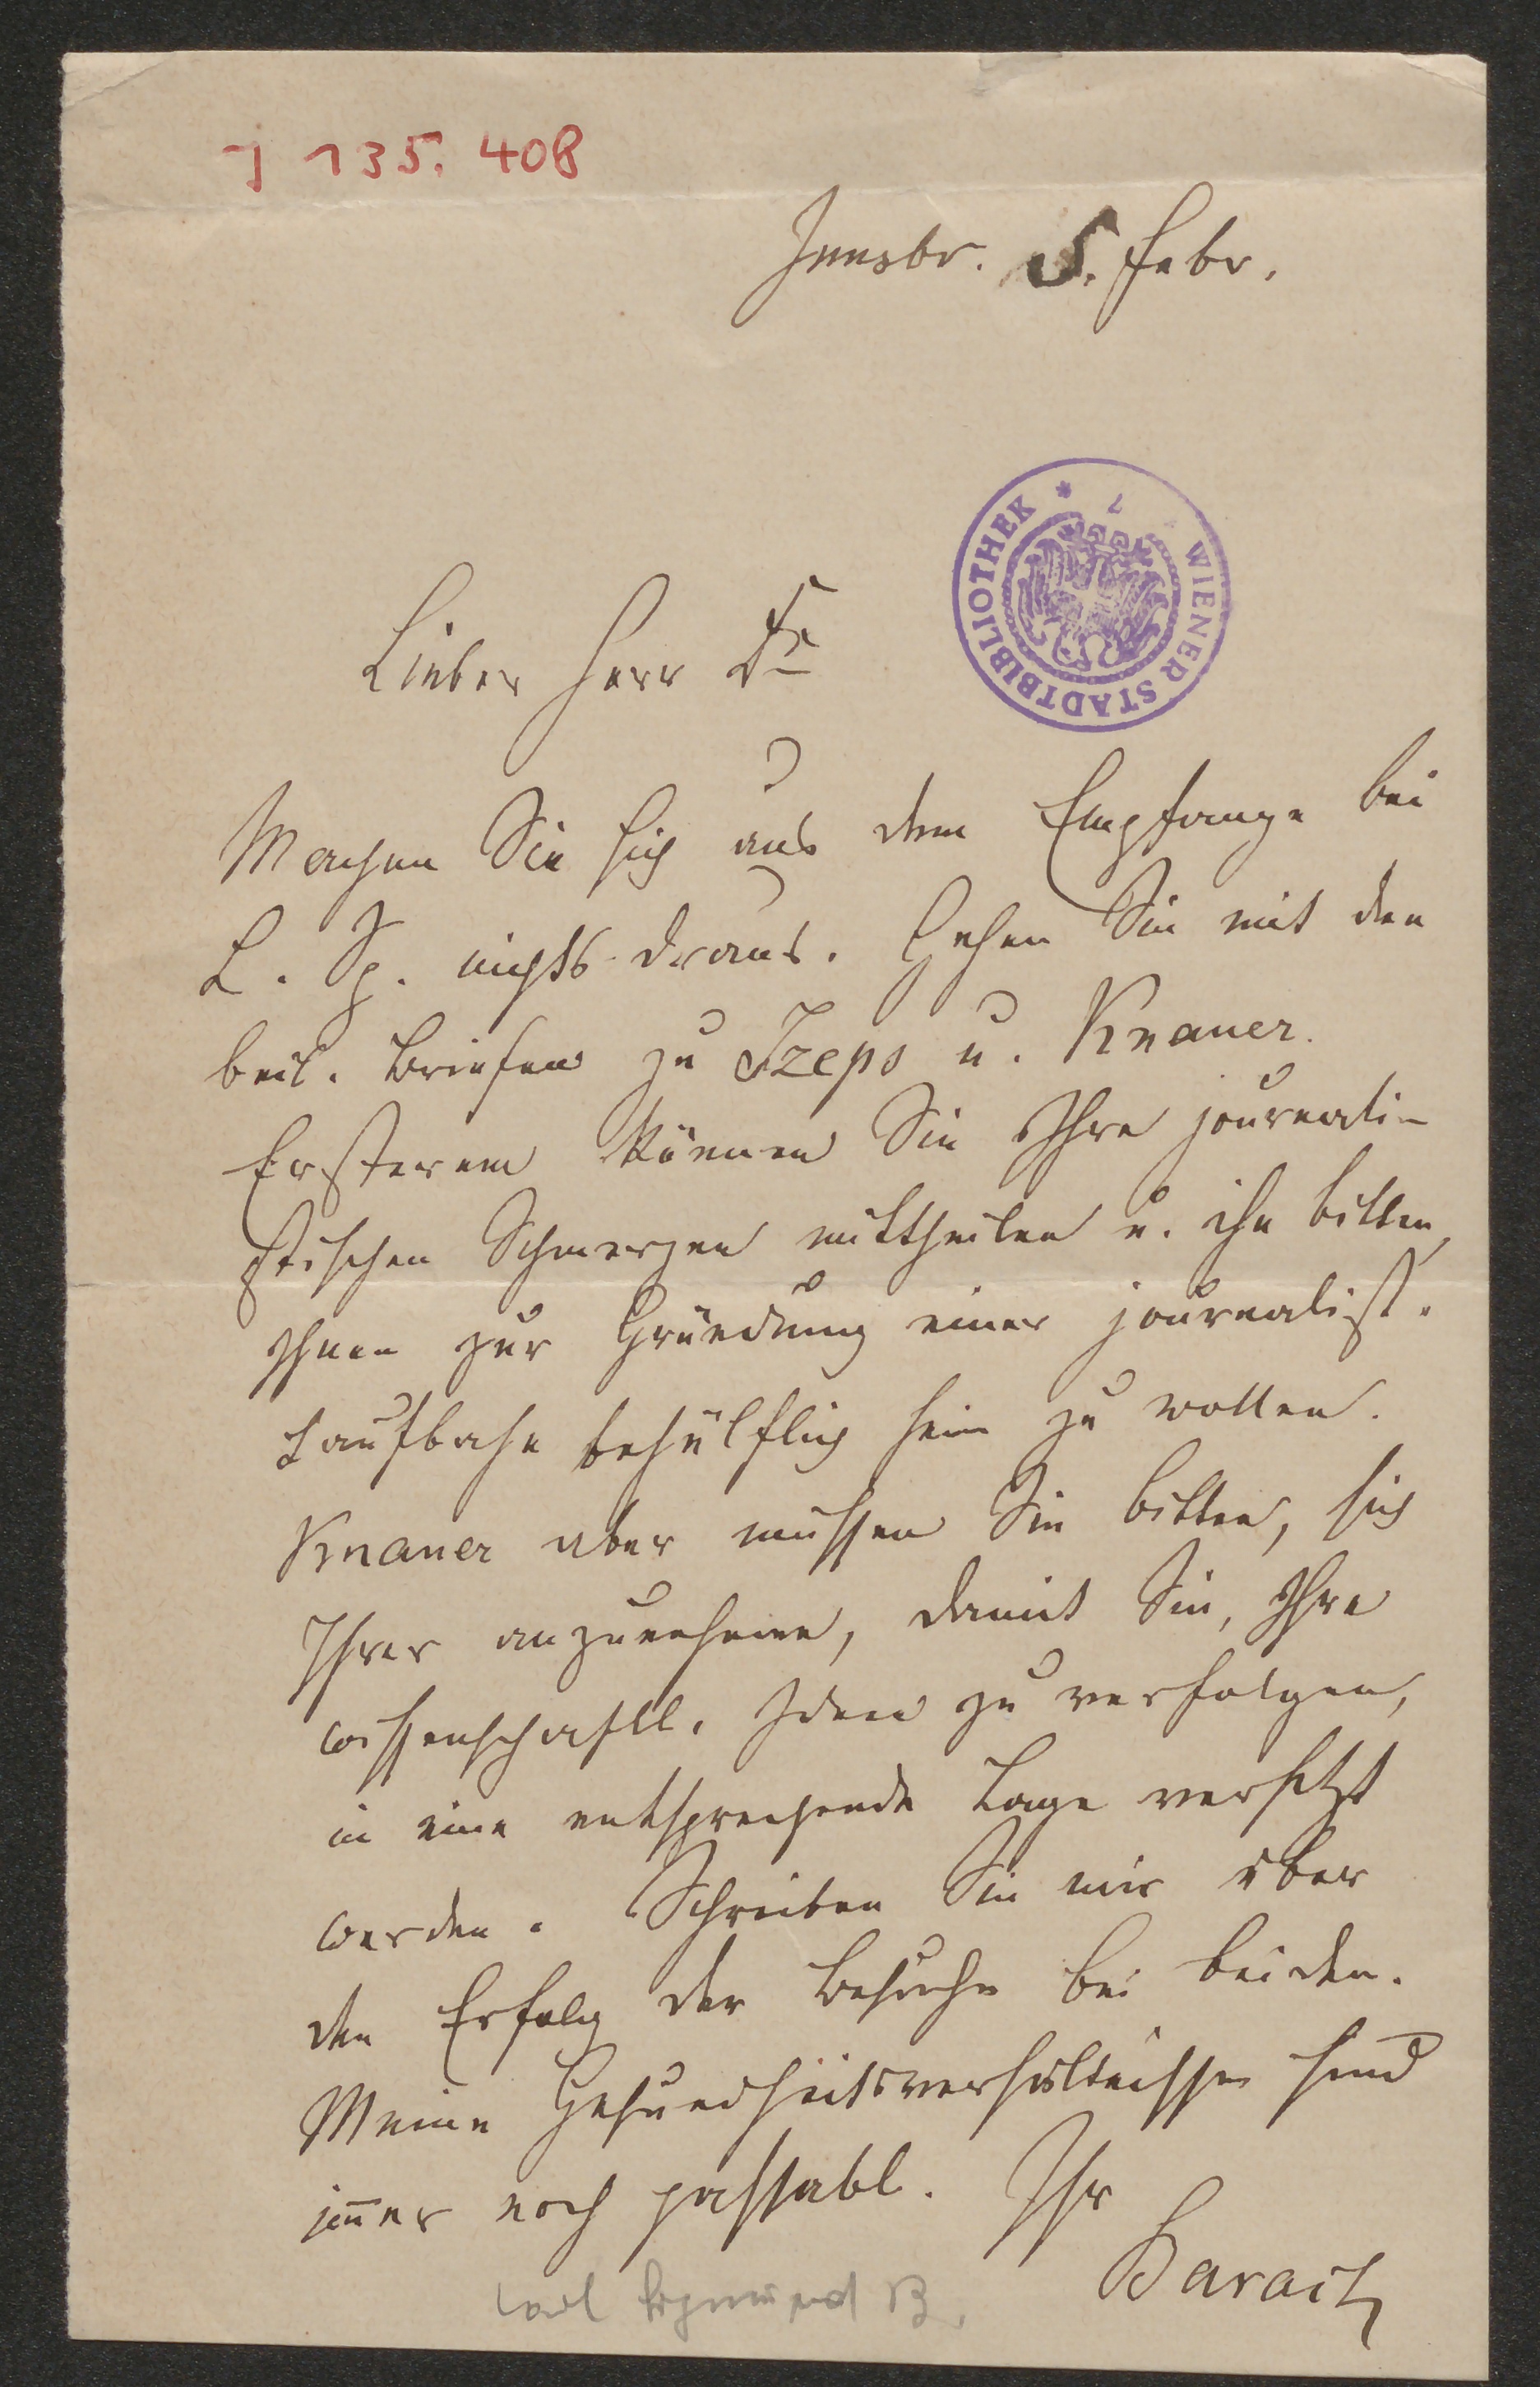 J 135.408
Innsbr. 5. Febr.
WIENER STADTBIBLIOTHEK *
Lieber Herr Dr
Machen Sie sich aus dem Empfange bei
L. J. nichts draus. Gehen Sie mit den
beil. Briefen zu Szeps u. Knauer.
Ersterem können Sie Ihre journali-
stischen Schmerzen mittheilen u. ihn bitten,
Ihnen zur Gründung einer journalist.
Laufbahn behülflich sein zu wollen.
Knauer aber müssen Sie bitten, sich
Ihrer anzunehmen, damit Sie, Ihre
wissenschaftl. Ideen zu verfolgen,
in eine entsprechende Lage versetzt
werden. Schreiben Sie mir über
den Erfolg der Besuche bei beiden.
Meine Gesundheitsverhältnisse sind
im̄er noch passabl. Ihr
Barach
Carl Sigmund B.